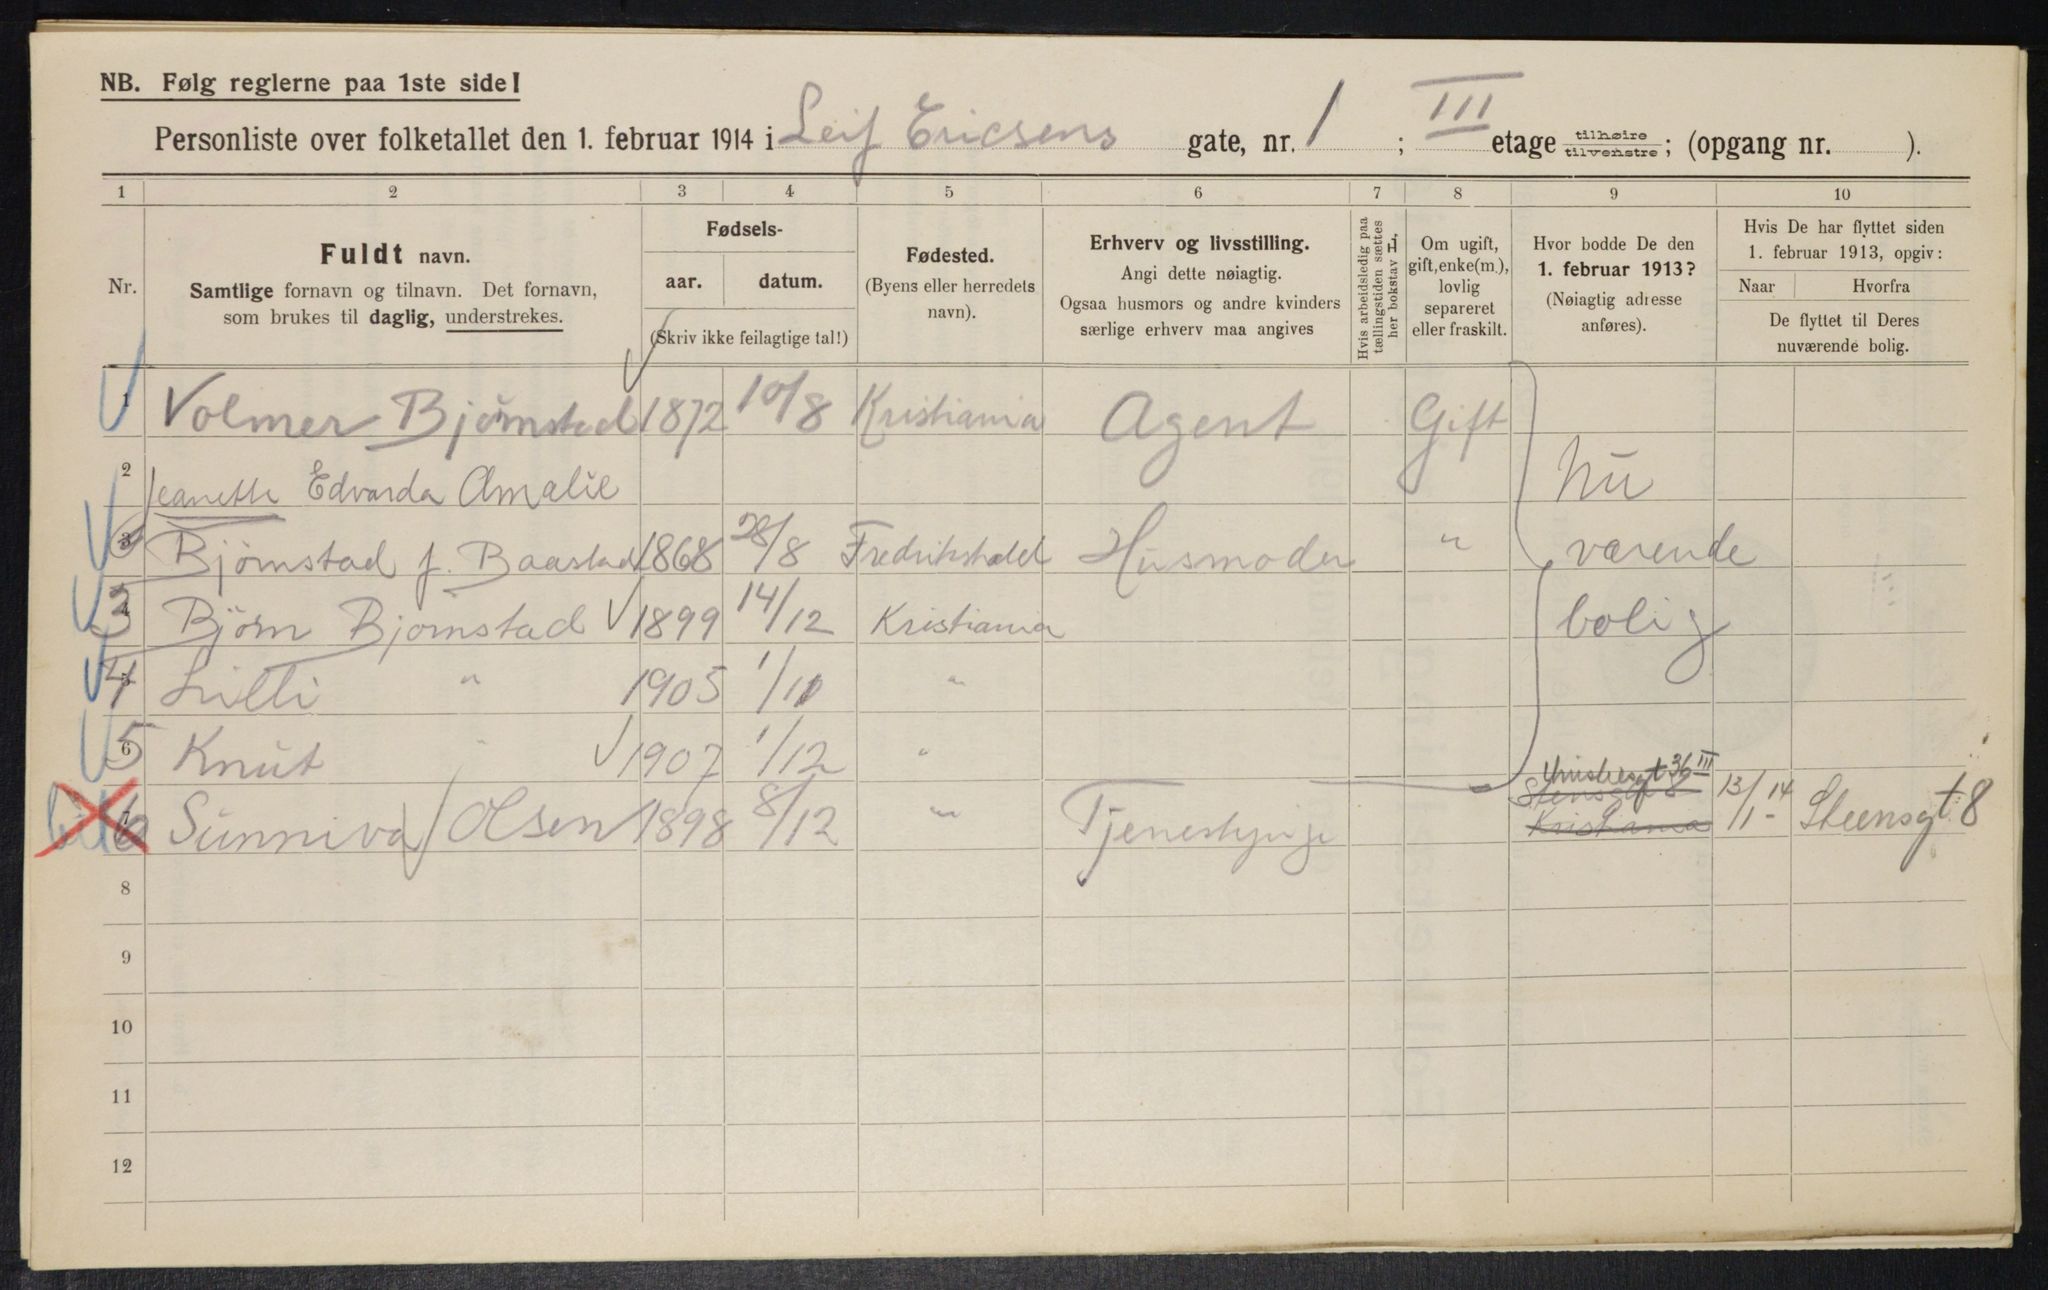 NB. Følg reglerne paa 1ste side!
Personliste over folketallet den 1. februar 1914 i Leif Ericsens gate, nr. 1 ; III etage tilhøire tilvenstre ; (opgang nr. ).
1 2 3 4 5 6 7 8 9 10
Nr.
Fuldt navn.
Samtlige fornavn og tilnavn. Det fornavn,
som brukes til daglig, understrekes.
Fødsels-
aar. datum.
(Skriv ikke feilagtige tal!)
Fødested.
(Byens eller herredets
navn).
Erhverv og livsstilling.
Angi dette nøiagtig.
Ogsaa husmors og andre kvinders
særlige erhverv maa angives
Hvis arbeidsledig paa
tællingstiden sættes
her bokstav L.
Om ugift,
gift, enke(m.),
lovlig
separeret
eller fraskilt.
Hvor bodde De den
1. februar 1913?
(Nøiagtig adresse
anføres).
Hvis De har flyttet siden
1. februar 1913, opgiv:
Naar Hvorfra
De flyttet til Deres
nuværende bolig.
1 Volmer Bjørnstad 1872 10/8 Kristiania Agent Gift Nu
2 Jeanette Edvarda Amalie
3 Bjørnstad f. Baastad 1868 28/8 Fredrikshald Husmoder " værende
4 3 Björn Bjornstad 1899 14/12 Kristiania bolig
5 4 Lilli " 1905 1/11 "
6 5 Knut " 1907 1/12 "
7 6 Sunniva Olsen 1898 8/12 " Tjenestpige 36 III Stensgt 8 Kristiania 13/1-14 Steensgt 8
8
9
10
11
12